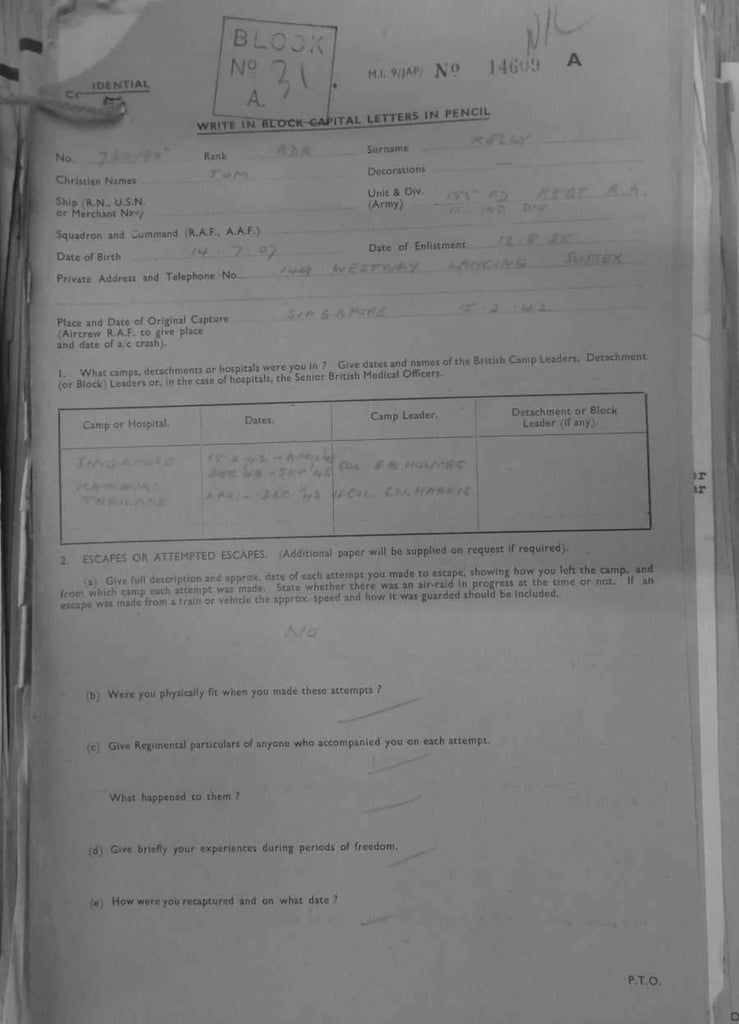 BLOCK
Nº 31.
A.
NIL
M.I. 9/JAP/ Nº 14609 A
IDENTIAL
WRITE IN BLOCK CAPITAL LETTERS IN PENCIL
No. Rank BDR Surname KELLY
Christian Names TOM Decorations —
Ship (R.N., U.S.N. or Merchant Navy
Unit & Div. (Army) 155 FD REGT R.A.
11 IND DIV
Squadron and Command (R.A.F., A.A.F.)
Date of Birth 14.7.07 Date of Enlistment 12.8.25
Private Address and Telephone No. 149 WESTWAY LANCING SUSSEX
Place and Date of Original Capture SINGAPORE 15.2.42
(Aircrew R.A.F. to give place
and date of a/c crash).
1. What camps, detachments or hospitals were you in ? Give dates and names of the British Camp Leaders, Detachment
(or Block) Leaders or, in the case of hospitals, the Senior British Medical Officers.
Camp or Hospital. Dates. Camp Leader. Detachment or Block Leader (If any).
SINGAPORE 15.2.42 - APRIL
DEC '43 - SEP '45 COL E.B. HOLMES
THAILAND APRIL - DEC LT-COL. S.W. HARRIS
2. ESCAPES OR ATTEMPTED ESCAPES. (Additional paper will be supplied on request if required).
(a) Give full description and approx. date of each attempt you made to escape, showing how you left the camp, and
from which camp each attempt was made. State whether there was an air-raid in progress at the time or not. If an
escape was made from a train or vehicle the approx. speed and how it was guarded should be included.
No
(b) Were you physically fit when you made these attempts ?
(c) Give Regimental particulars of anyone who accompanied you on each attempt.
What happened to them ?
(d) Give briefly your experiences during periods of freedom.
(e) How were you recaptured and on what date ?
P.T.O.